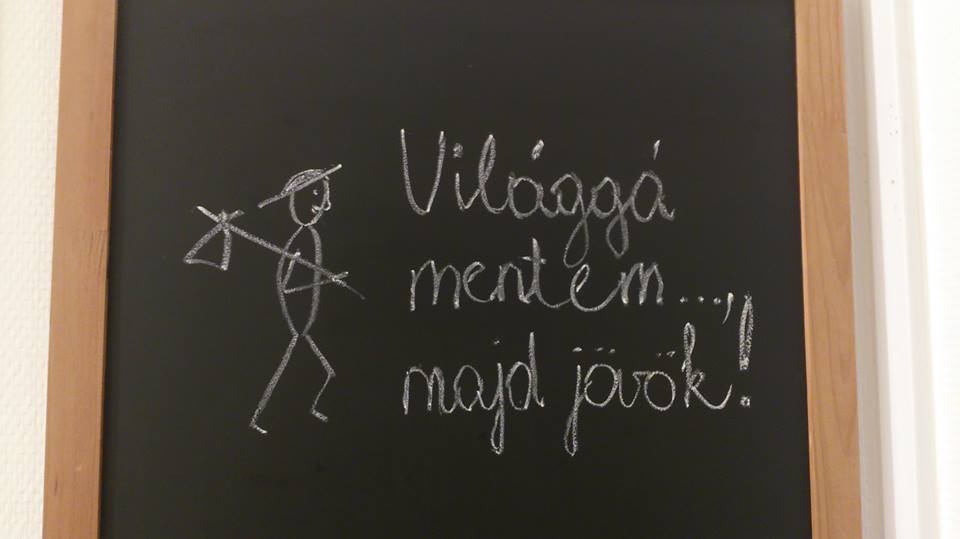 Világgá
mentem...,
majd jövök!